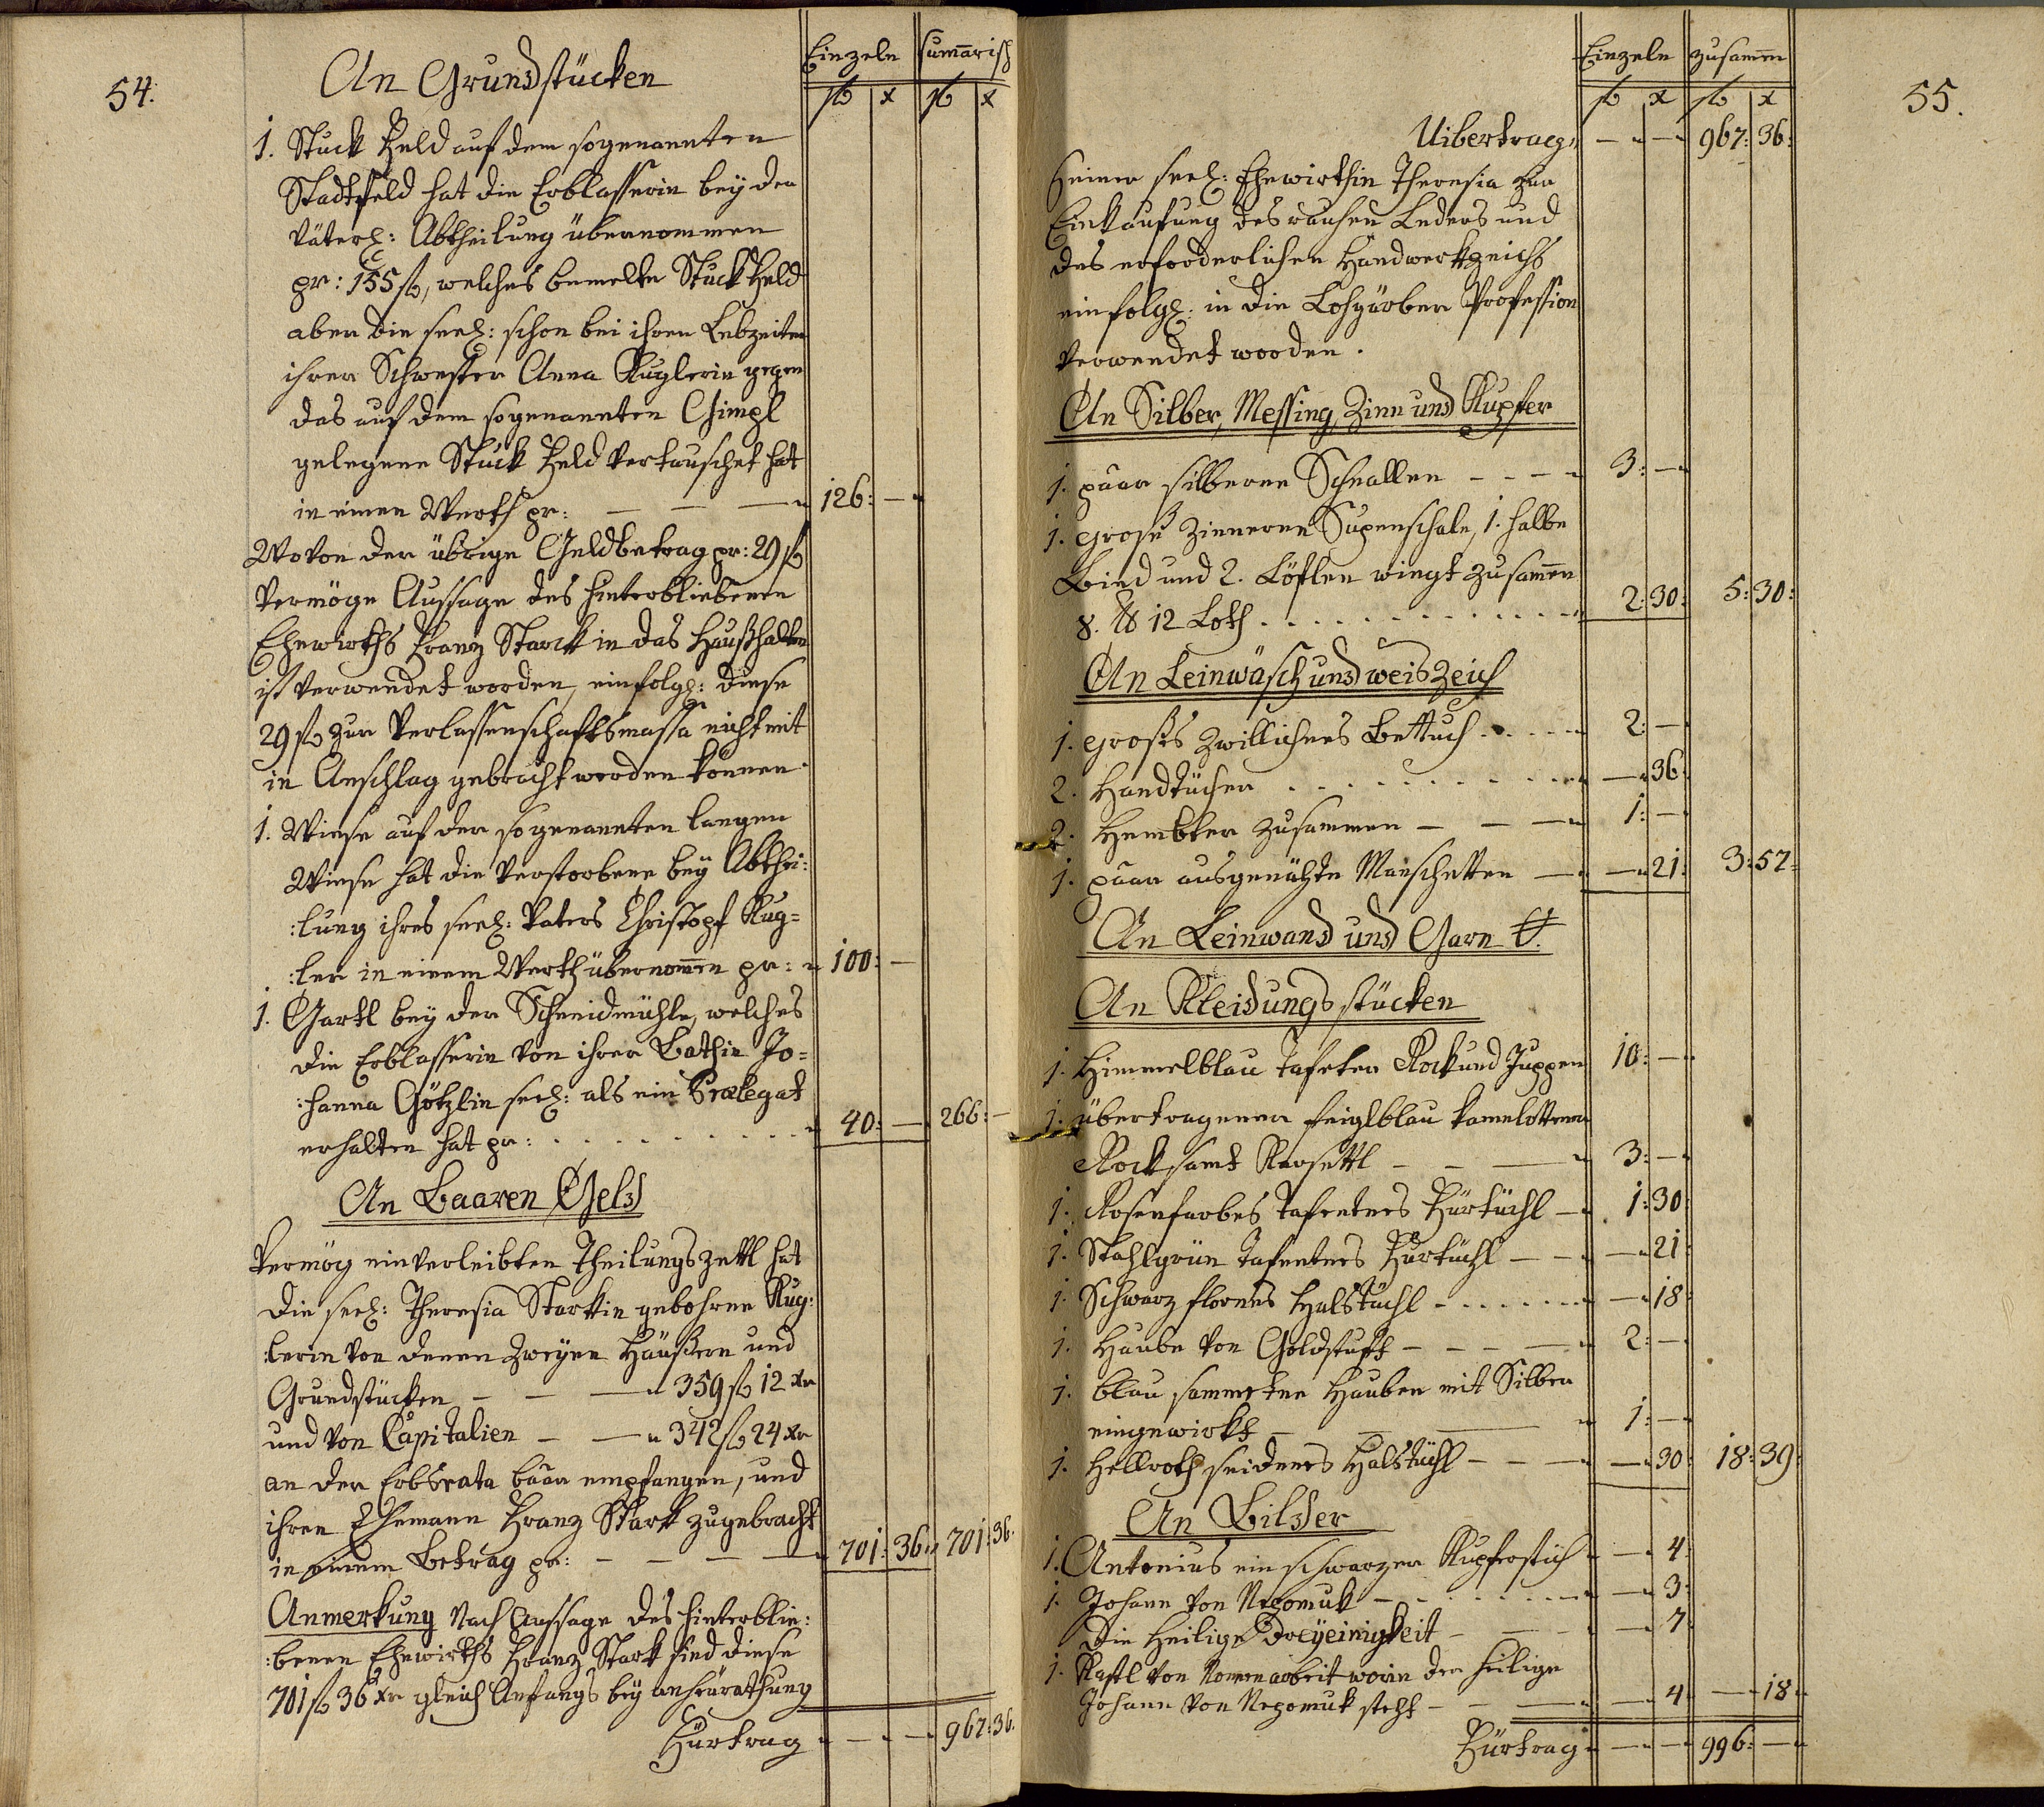 54.
An Grundstücken
Einzeln sumarisch
fl x fl x
1. Stuck Feld auf dem sogenannten
Stadtfeld hat die Erblasserin bey der
väterl: Abtheilung übernommen
pr: 155 fl, welches bemelte Stuck Feld
aber die seel: schon bei ihren Lebzeiten
ihrer Schwester Anna Kuglerin gegen
das auf dem sogenannten Gimpl
gelegene Stuck Feld vertauschet hat
in einen Werth pr: — — — 126: —
Wovon der übrige Geldbetrag pr: 29 fl
vermöge Aussage des hinterbliebenen
Ehewirths Franz Starck in das Haußhalten
ist verwendet worden, einfolgl: diese
29 fl zur Verlassenschaftsmassa nicht mit
in Anschlag gebracht werden können.
1. Wiese auf der sogenannten langen
Wiese hat die Verstorbene bey Abthei:
:lung ihres seel: Vaters Christopf Kug=
:ler in einem Werth übernomen pr: 100: —
1. Gartl bey der Schneidmühle, welches
die Erblasserin von ihrer Bathin Jo=
:hanna Götzlin seel: als ein Prælegat
erhalten hat pr: . . . . . . . . . 40: — 266: —
An Baaren Geld
Vermög einverleibten Theilungszettl hat
die seel: Theresia Starkin gebohrne Kug:
:lerin von denen zweyen Häußern und
Grundstücken — — — 359 fl 12 xr
und von Capitalien — — 342 fl 24 xr
an der Erbsrata baar empfangen, und
ihren Ehemann Franz Stark zugebracht
in einem Betrag pr: — — — — 701: 36 701: 36.
Anmerkung Nach Aussage des hinterblie:
:benen Ehewirths Franz Stark sind diese
701 fl 36 xr gleich Anfangs bey anheurathung
Fürtrag — — 967: 36.
55.
Einzeln zusamen
fl x fl x
Uibertrag: — — 967: 36:
seiner seel: Ehewirthin Theresia zur
Einkaufung des rauhen Leders und
des erforderlichen Handwerkzeichs
einfolgl: in die Lohgärber Profession
verwendet worden.
An Silber, Messing, Zinn und Kupfer
1. paar silberne Schnallen — — — 3: —
1. grose Zinnerne Supenschale, 1. halbe
Bind und 2. Löflen wiegt zusamen
8. ℔ 12 Loth . . . . . . . . . . 2: 30: 5: 30:
An Leinwäsch und weis Zeich
1. großes Zwillichnes Bettuch . . . . 2: —
2. Handtücher . . . . . . . . . — 36
2. Hembter zusammen — — — 1: —
1. paar ausgenähte Manschetten — — 21: 3: 57:
An Leinwand und Garn
An Kleidungsstücken
1. Himmelblau tafeter Rock und Juppen 10: —
1. übertragener feiglblau kamelottener
Rock samt Korsettl — — — 3: —
1. Rosenfarbes tafentnes Fürtüchl — 1: 30
1. Stahlgrün tafentnes Fürtüchl — — 21
1. Schwarz flornes Halstüchl . . . . . . — 18
1. Haube von Goldstuft — — — 2: —
1. blau sammetne Hauben mit Silber
eingewirkt — — — 1: —
1. Hellroth seidenes Halstüchl — — — — 30 18: 39:
An Bilder
1. Antonius ein schwarzer Kupferstich — 4
1. Johann von Nepomuk — . . . . . — 3
Die Heilige Dreyeinigkeit — — — — 7
1. Kastl von Nonnenarbeit worin der heilige
Johann von Nepomuk steht — — — — 4 — 18
Fürtrag — — 996: —